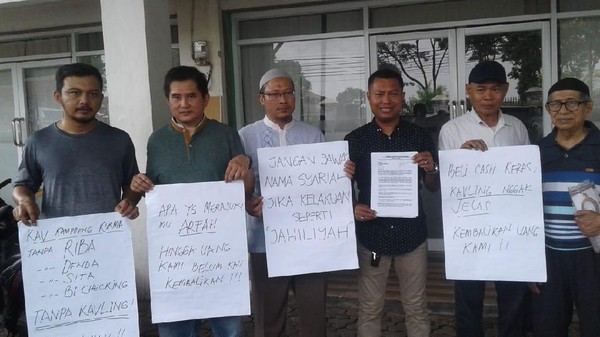 KAV KAMPUNG KURMA
TANPA RIBA
---,, --- DENDA
---,, --- SITA
---,, --- BI CHECKING
TANPA KAVLING!
APA YG MERASUKI
MU ARFAH
HINGGA UANG
KAMI BELUM KAU
KEMBALIKAN !!!
JANGAN BAWA
NAMA SYARIAH
JIKA KELAKUAN
SEPERTI
JAHILIYAH
BELI CASH KERAS,
KAVLING NGGAK
JELAS
KEMBALIKAN UANG
KAMI !!